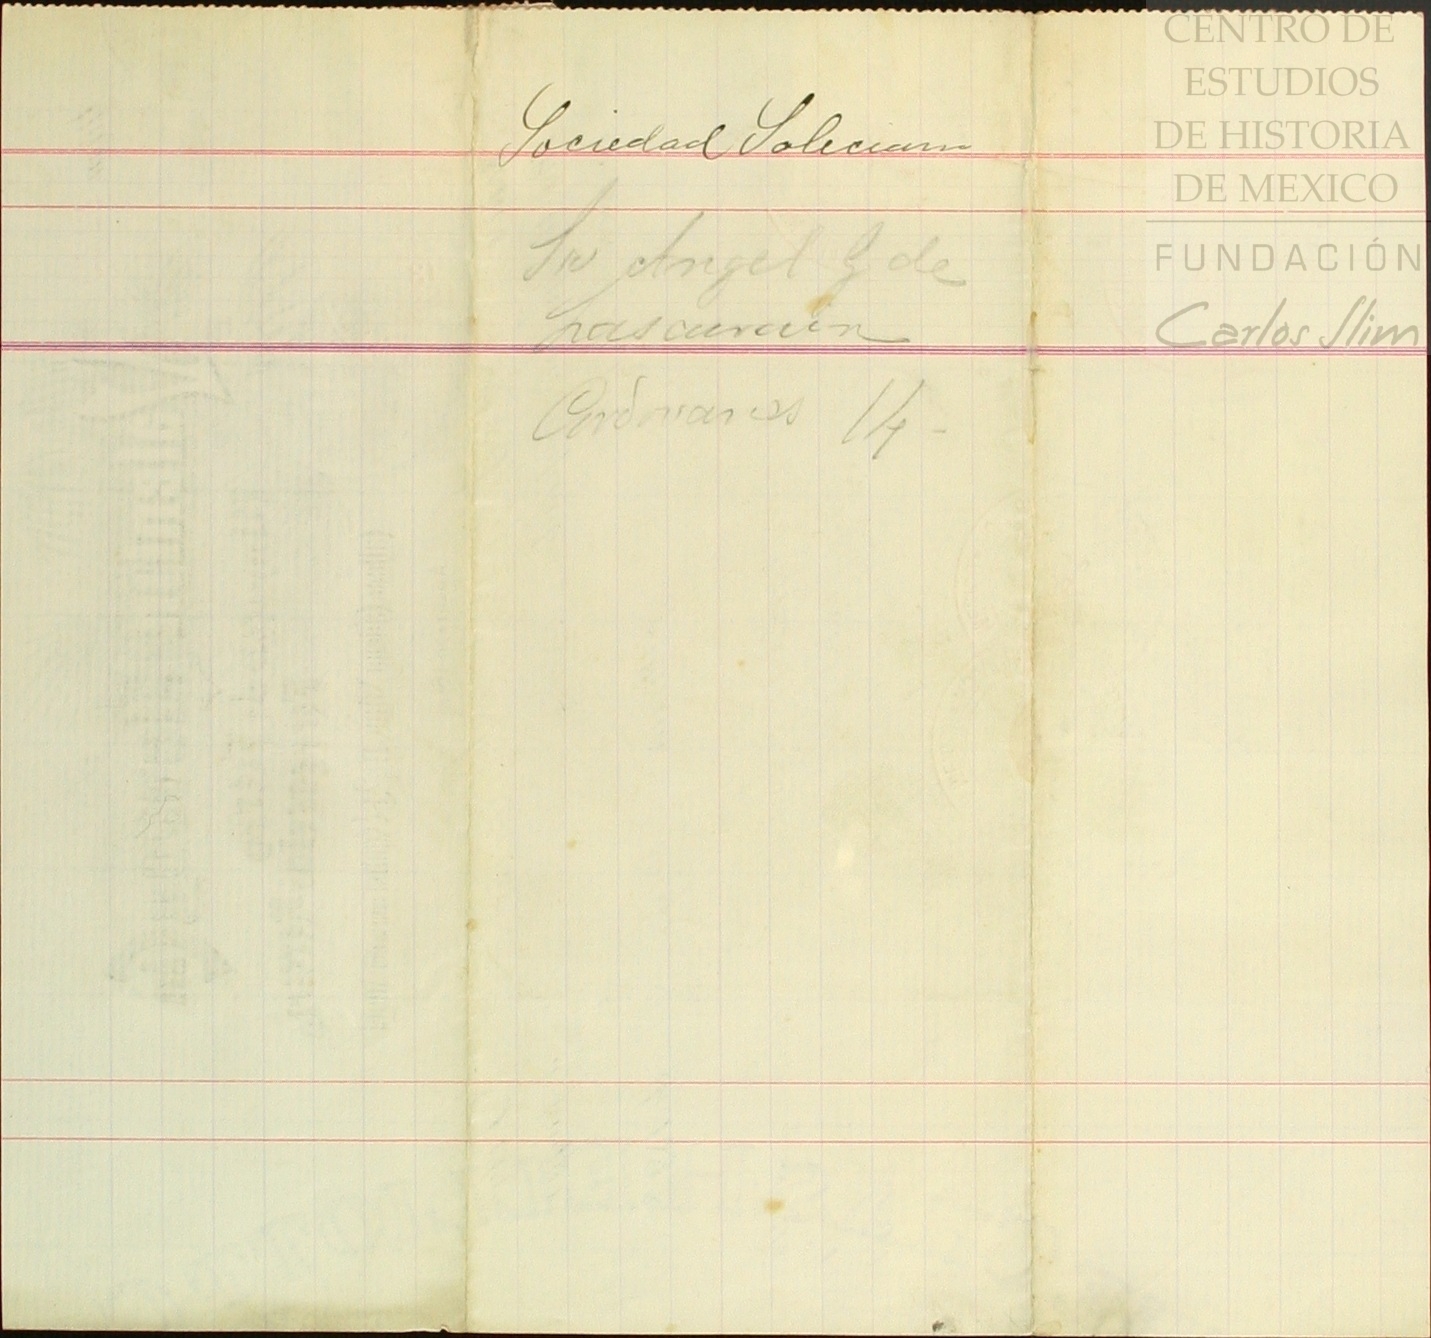 Sociedad Saleciana
Sr Angel G de
Lascurain
Cordovanes 14-
CENTRO DE
ESTUDIOS
DE HISTORIA
DE MEXICO
FUNDACIÓN
Carlos Slim